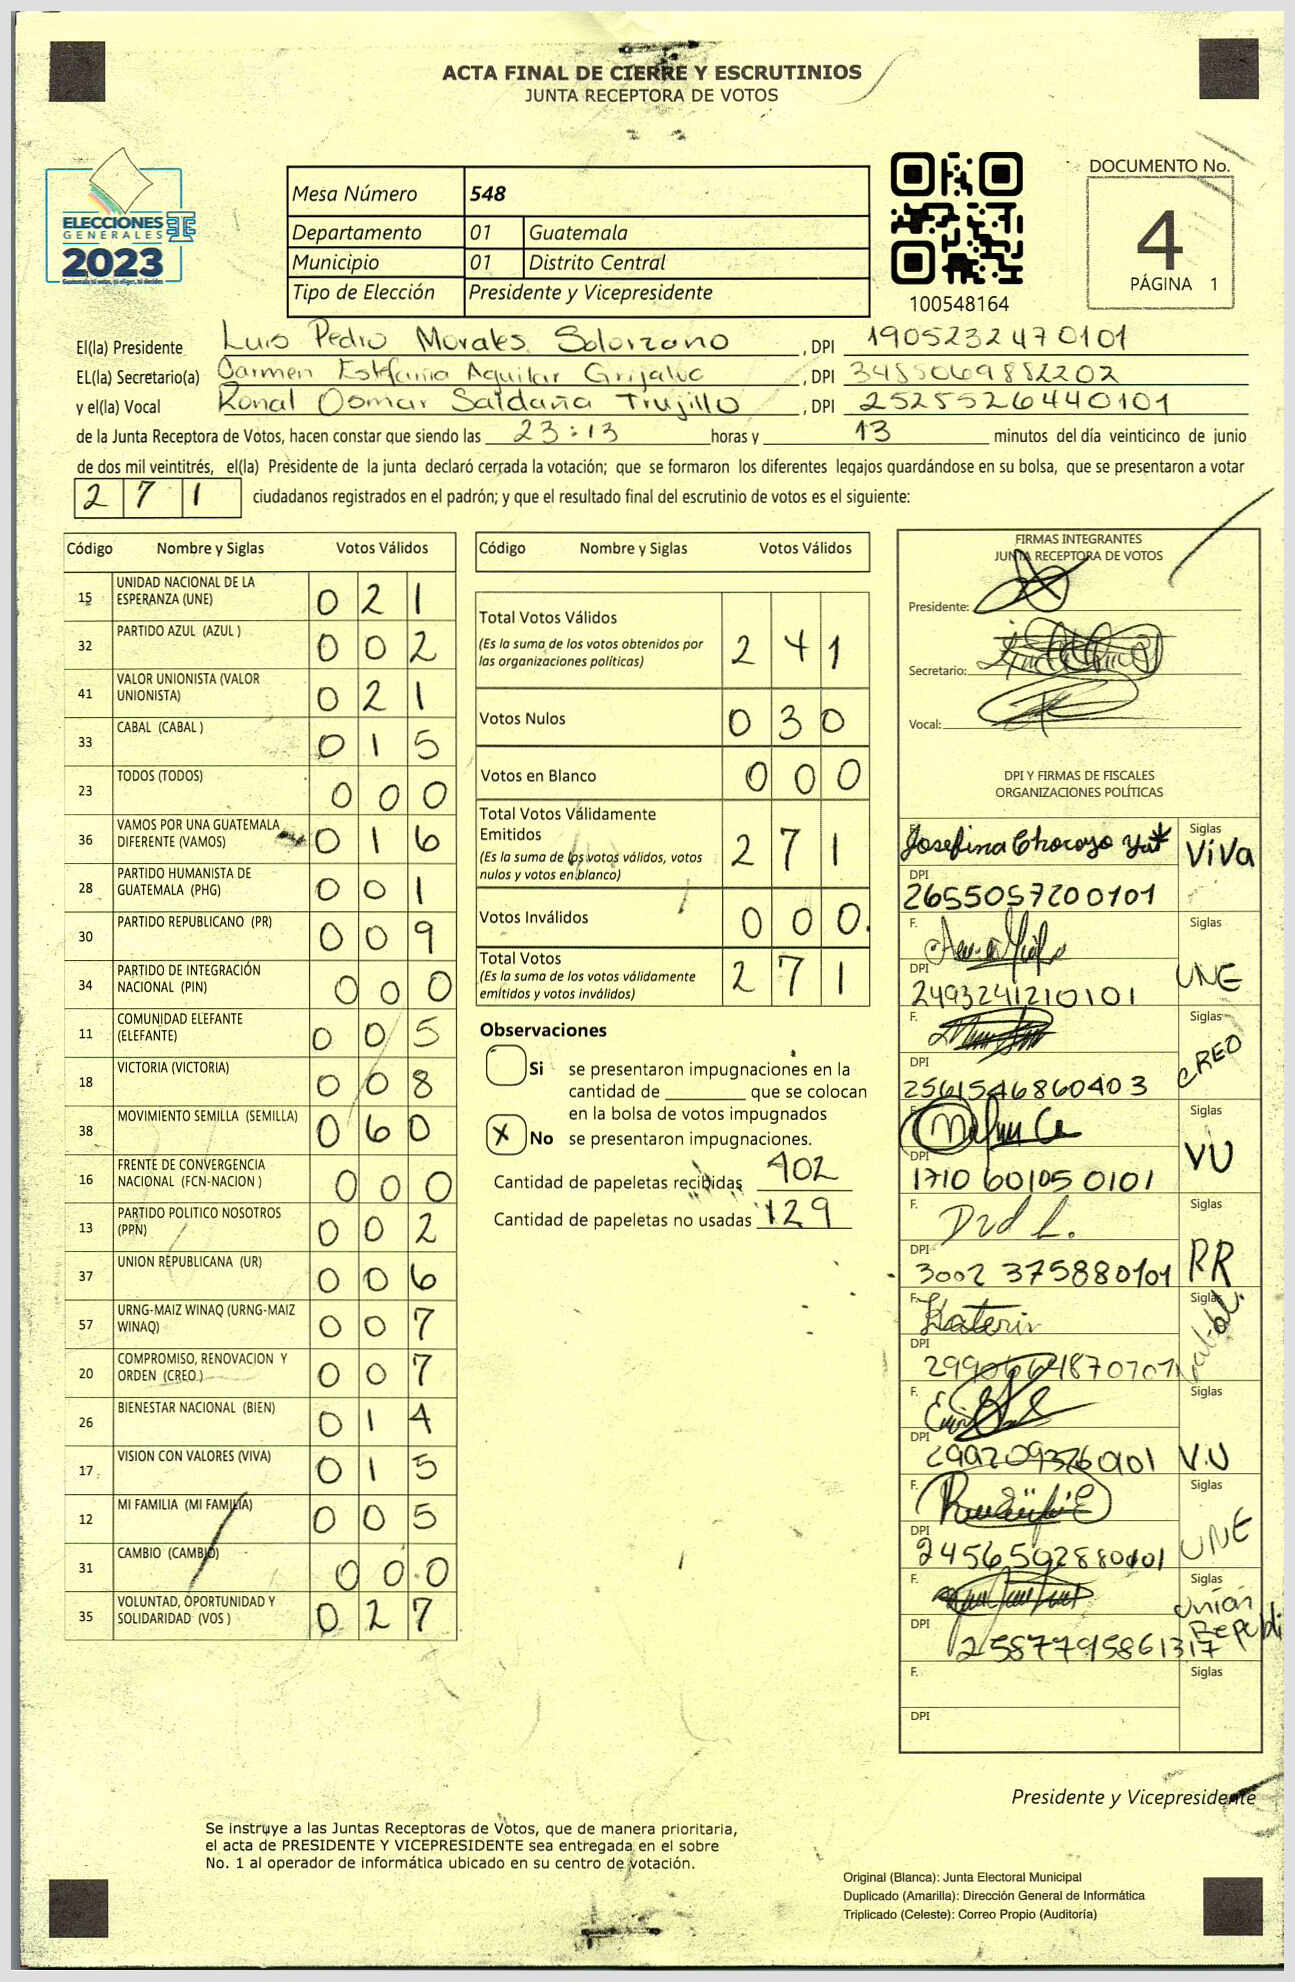 ACTA FINAL DE CIERRE Y ESCRUTINIOS
JUNTA RECEPTORA DE VOTOS
ELECCIONES
GENERALES
2023
Mesa Número 548
Departamento 01 Guatemala
Municipio 01 Distrito Central
Tipo de Elección Presidente y Vicepresidente
100548164
DOCUMENTO No.
4
PÁGINA 1
El(la) Presidente Luis Pedro Morales Solorzano , DPI 1905232470101
EL(la) Secretario(a) Carmen Estefania Aguilar Grijalva , DPI 3455069882202
y el(la) Vocal Ronal Oomar Saldaña Trujillo , DPI 2525526440101
de la Junta Receptora de Votos, hacen constar que siendo las 23:13 horas y 13 minutos del día veinticinco de junio
de dos mil veintitrés, el(la) Presidente de la junta declaró cerrada la votación; que se formaron los diferentes legajos quardándose en su bolsa, que se presentaron a votar
271 ciudadanos registrados en el padrón; y que el resultado final del escrutinio de votos es el siguiente:
Código Nombre y Siglas Votos Válidos
15 UNIDAD NACIONAL DE LA ESPERANZA (UNE) 021
32 PARTIDO AZUL (AZUL ) 002
41 VALOR UNIONISTA (VALOR UNIONISTA) 021
33 CABAL (CABAL ) 015
23 TODOS (TODOS) 000
36 VAMOS POR UNA GUATEMALA DIFERENTE (VAMOS) 016
28 PARTIDO HUMANISTA DE GUATEMALA (PHG) 001
30 PARTIDO REPUBLICANO (PR) 009
34 PARTIDO DE INTEGRACIÓN NACIONAL (PIN) 000
11 COMUNIDAD ELEFANTE (ELEFANTE) 005
18 VICTORIA (VICTORIA) 008
38 MOVIMIENTO SEMILLA (SEMILLA) 060
16 FRENTE DE CONVERGENCIA NACIONAL (FCN-NACION ) 000
13 PARTIDO POLITICO NOSOTROS (PPN) 002
37 UNION REPUBLICANA (UR) 006
57 URNG-MAIZ WINAQ (URNG-MAIZ WINAQ) 007
20 COMPROMISO, RENOVACION Y ORDEN (CREO.) 007
26 BIENESTAR NACIONAL (BIEN) 014
17 VISION CON VALORES (VIVA) 015
12 MI FAMILIA (MI FAMILIA) 005
31 CAMBIO (CAMBIO) 000
35 VOLUNTAD, OPORTUNIDAD Y SOLIDARIDAD (VOS ) 027
Código Nombre y Siglas Votos Válidos
Total Votos Válidos 241
(Es la suma de los votos obtenidos por
las organizaciones políticas)
Votos Nulos 030
Votos en Blanco 000
Total Votos Válidamente
Emitidos 271
(Es la suma de los votos válidos, votos
nulos y votos en blanco)
Votos Inválidos 000
Total Votos 271
(Es la suma de los votos válidamente
emitidos y votos inválidos)
Observaciones
Si se presentaron impugnaciones en la
cantidad de ________ que se colocan
en la bolsa de votos impugnados
X No se presentaron impugnaciones.
Cantidad de papeletas recibidas 402
Cantidad de papeletas no usadas 129
FIRMAS INTEGRANTES
JUNTA RECEPTORA DE VOTOS
Presidente:
Secretario:
Vocal:
DPI Y FIRMAS DE FISCALES
ORGANIZACIONES POLÍTICAS
F. Josefina Chocoyo Yat Siglas ViVa
DPI 2655057200101
F. Siglas UNE
DPI 2493241210101
F. Siglas CREO
DPI 2561546860403
F. Siglas VU
DPI 1710601050101
F. Siglas PR
DPI 3002375880101
F. Katerin Siglas
DPI
F. Siglas V.U
DPI 2992093260101
F. Siglas UNE
DPI 2456592880101
F. Siglas Unión Republi
DPI 2587795861317
F. Siglas
DPI
Presidente y Vicepresidente
Se instruye a las Juntas Receptoras de Votos, que de manera prioritaria,
el acta de PRESIDENTE Y VICEPRESIDENTE sea entregada en el sobre
No. 1 al operador de informática ubicado en su centro de votación.
Original (Blanca): Junta Electoral Municipal
Duplicado (Amarilla): Dirección General de Informática
Triplicado (Celeste): Correo Propio (Auditoría)